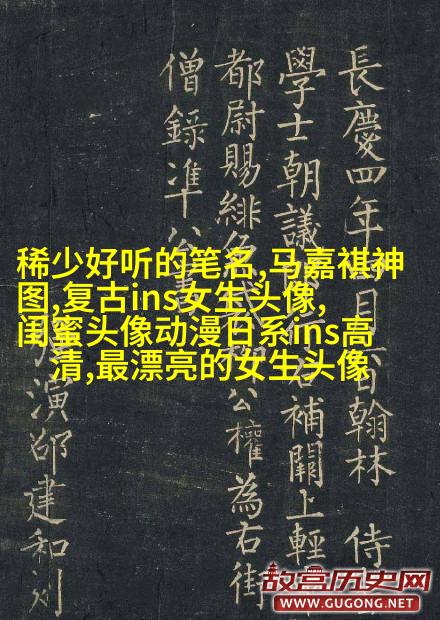 長慶四年月六翰林侍
學士朝議補闕上輕
都尉賜緋公權為右街
僧錄准公
演邵建和刻
稀少好听的笔名,马嘉祺神
图,复古ins女生头像,
闺蜜头像动漫日系ins高
清,最漂亮的女生头像
故宫历史网
WWW.GUGONG.NET